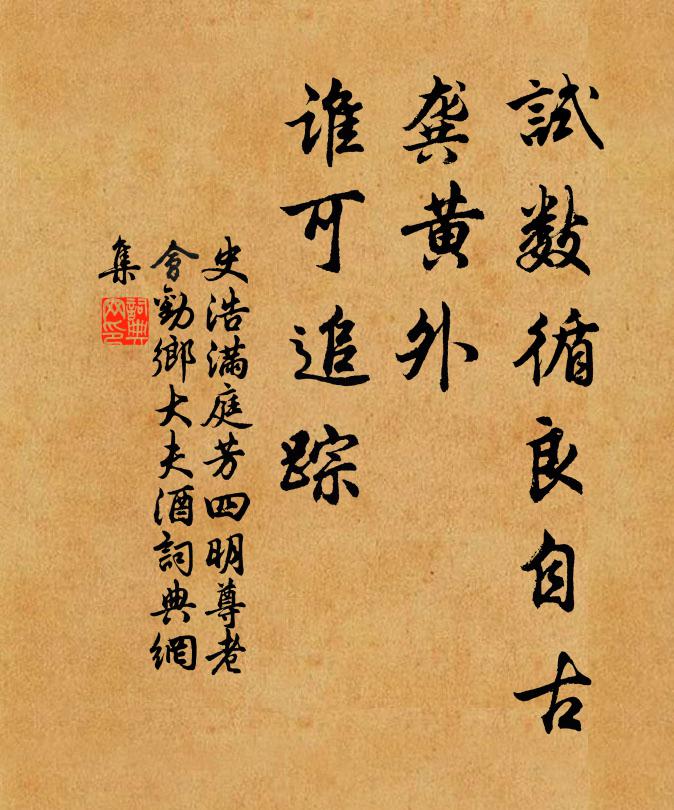 試數循良自古
龔黃外
誰可追踪
史浩滿庭芳四明尊老
會勸鄉大夫酒詞典網
集
詞典